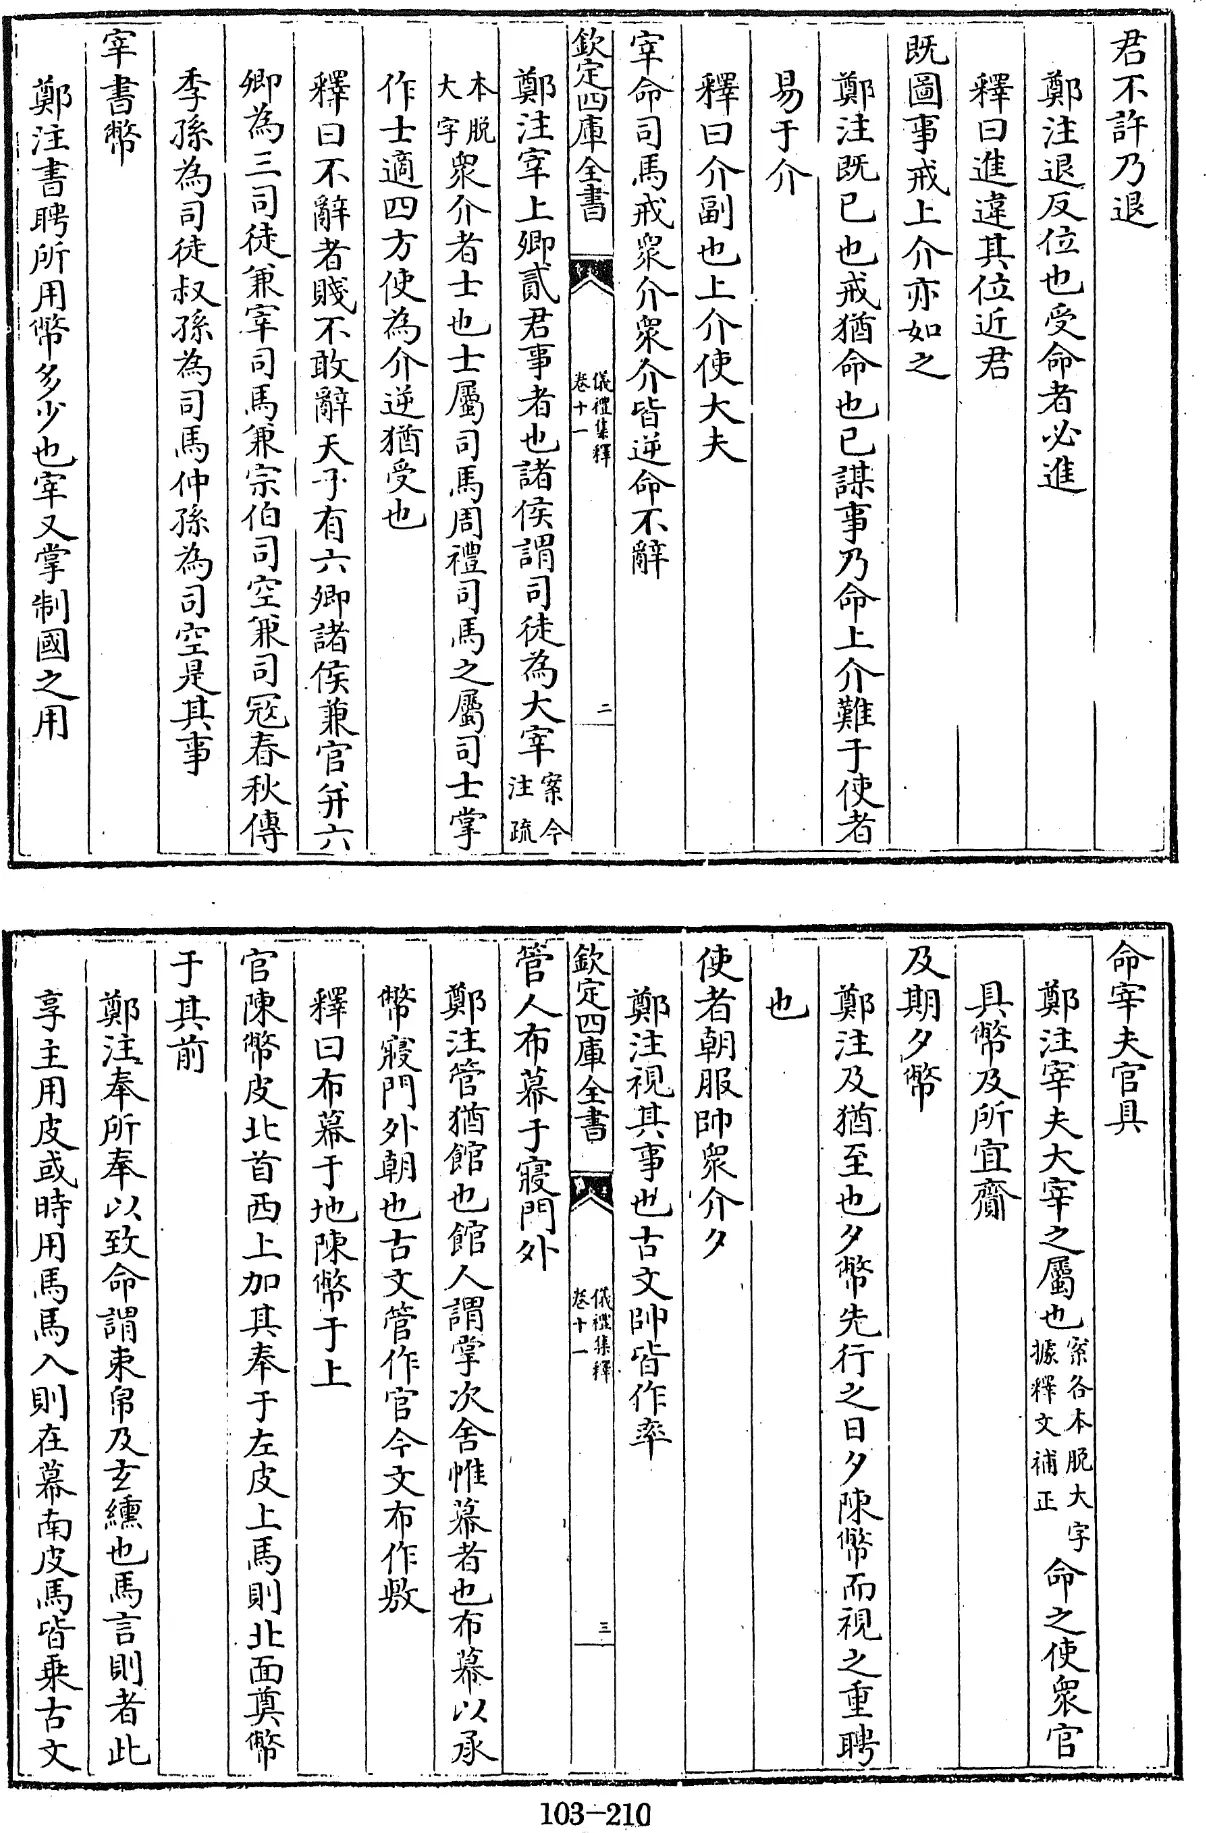 君不許乃退
鄭注退反位也受命者必進
釋曰進違其位近君
既圖事戒上介亦如之
鄭注既已也戒猶命也已謀事乃命上介難于使者
易于介
釋曰介副也上介使大夫
宰命司馬戒衆介衆介皆逆命不辭
欽定四庫全書
儀禮集釋
卷十一
二
鄭注宰上卿貳君事者也諸侯謂司徒為大宰案今注疏
本脱大字衆介者士也士屬司馬周禮司馬之屬司士掌
作士適四方使為介逆猶受也
釋曰不辭者賤不敢辭天子有六卿諸侯兼官并六
卿為三司徒兼宰司馬兼宗伯司空兼司寇春秋傳
季孫為司徒叔孫為司馬仲孫為司空是其事
宰書幣
鄭注書聘所用幣多少也宰又掌制國之用
命宰夫官具
鄭注宰夫大宰之屬也案各本脱大字據釋文補正命之使衆官
具幣及所宜齎
及期夕幣
鄭注及猶至也夕幣先行之日夕陳幣而視之重聘
也
使者朝服帥衆介夕
鄭注視其事也古文帥皆作率
欽定四庫全書
儀禮集釋
卷十一
三
管人布幕于寢門外
鄭注管猶館也館人謂掌次舍帷幕者也布幕以承
幣寢門外朝也古文管作官今文布作敷
釋曰布幕于地陳幣于上
官陳幣皮北首西上加其奉于左皮上馬則北面奠幣
于其前
鄭注奉所奉以致命謂束帛及玄纁也馬言則者此
享主用皮或時用馬馬入則在幕南皮馬皆乘古文
103-210